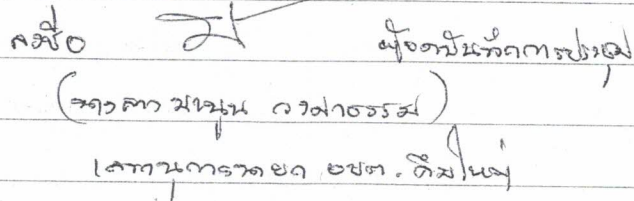 ลงชื่อ ผู้จดบันทึกการประชุม
(นางสาว วงษาธรรม)
เลขานุการนายก อบต.คึมใหญ่